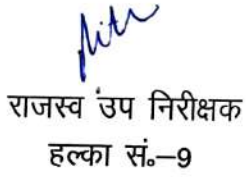 राजस्व उप निरीक्षक
हल्का सं०–9